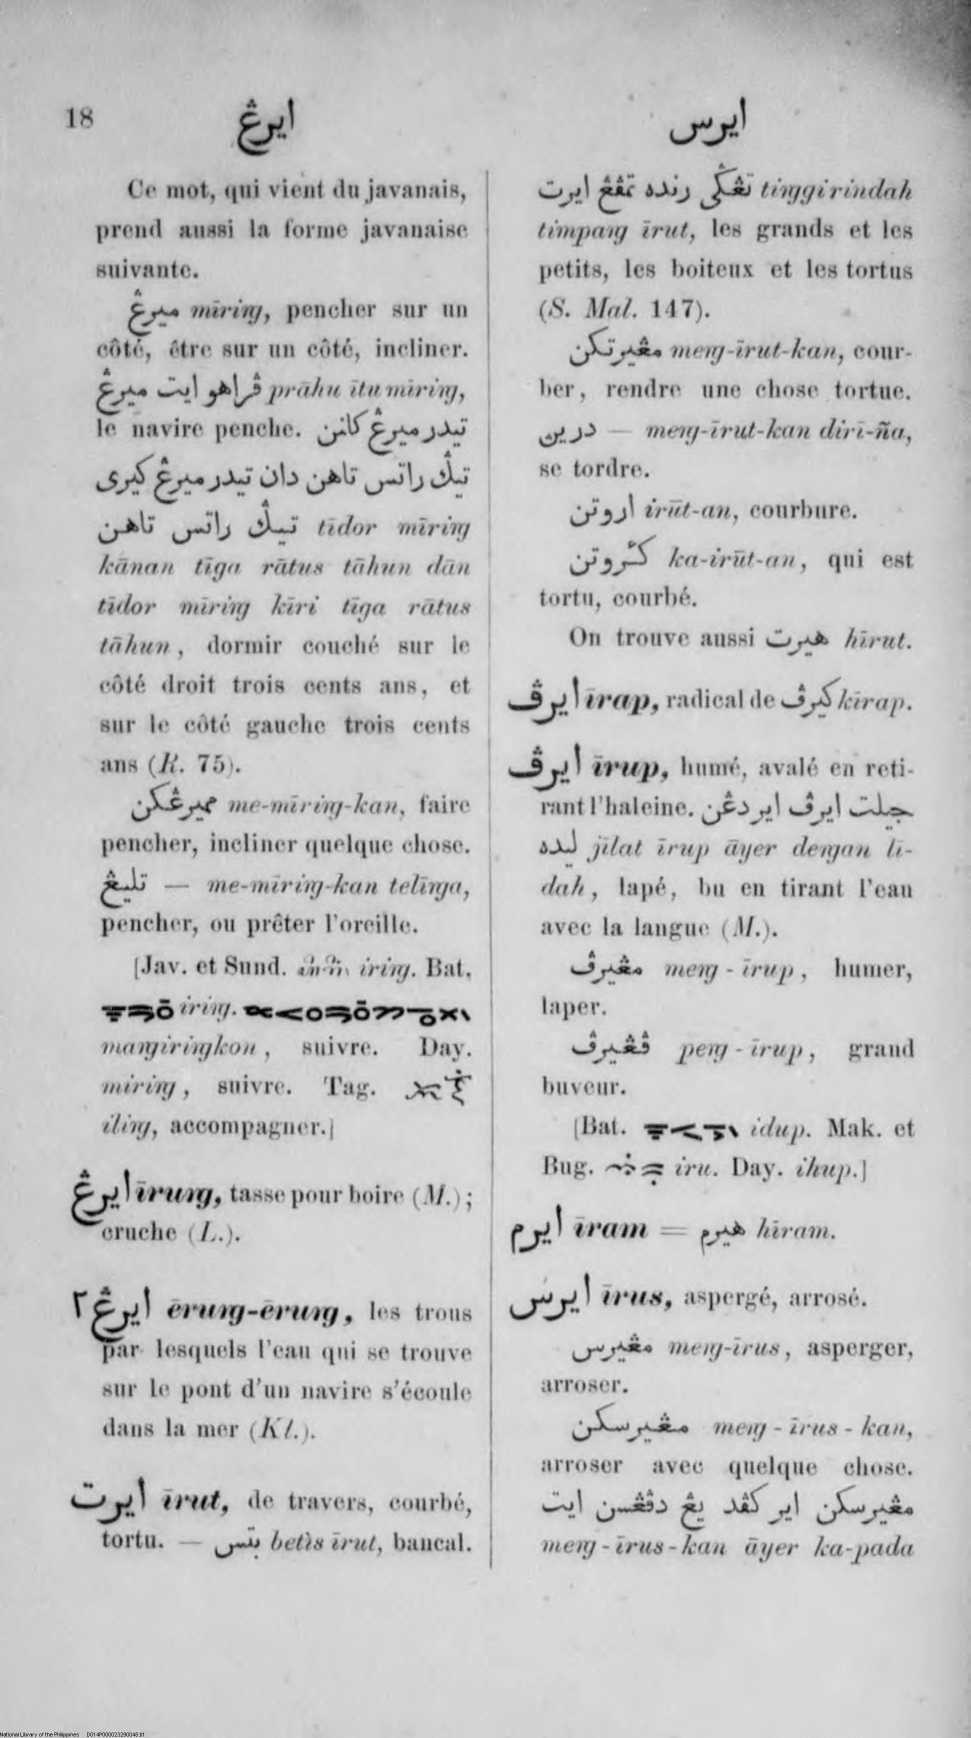 18
ايرڠ
ايرس
Ce mot, qui vient du javanais,
prend aussi la forme javanaise
suivante.
ميرڠ mīriŋg, pencher sur un
côté, être sur un côté, incliner.
ڤراهو ايت ميرڠ prāhu ītu miriŋg,
le navire penche. تيدر ميرڠ كانن
تيݢ راتس تاهن دان تيدر ميرڠ كيرى
تيݢ راتس تاهن tīdor mīriŋg
kānan tīga rātus tāhun dān
tīdor mīriŋg kīri tīga rātus
tāhun, dormir couché sur le
côté droit trois cents ans, et
sur le côté gauche trois cents
ans (R. 75).
مميرڠكن me-mīriŋg-kan, faire
pencher, incliner quelque chose.
تليڠ — me-mīriŋg-kan telīŋga,
pencher, ou prêter l'oreille.
[Jav. et Sund. iriŋg. Bat.
iriŋg.
maŋgiriŋgkon, suivre. Day.
miriŋg, suivre. Tag.
iliŋg, accompagner.]
ايرڠ īruŋg, tasse pour boire (M.);
cruche (L.).
ايرڠ ٢ ēruŋg-ēruŋg, les trous
par lesquels l'eau qui se trouve
sur le pont d'un navire s'écoule
dans la mer (Kl.).
ايرت īrut, de travers, courbé,
tortu. — بتس betìs īrut, bancal.
تڠݢى رنده تمڤڠ ايرت tiŋggi rindah
timpaŋg īrut, les grands et les
petits, les boiteux et les tortus
(S. Mal. 147).
مڠيرتكن meŋg-īrut-kan, cour-
ber, rendre une chose tortue.
درين — meŋg-īrut-kan dirī-ña,
se tordre.
اروتن irūt-an, courbure.
كئروتن ka-irūt-an, qui est
tortu, courbé.
On trouve aussi هيرت hīrut.
ايرڤ īrap, radical de كيرڤ kīrap.
ايرڤ īrup, humé, avalé en reti-
rant l'haleine. جيلت ايرڤ اير دڠن
ليده jīlat īrup āyer deŋgan lī-
dah, lapé, bu en tirant l'eau
avec la langue (M.).
مڠيرڤ meŋg-īrup, humer,
laper.
ڤڠيرڤ peŋg-īrup, grand
buveur.
[Bat. idup. Mak. et
Bug. iru. Day. ihup.]
ايرم īram = هيرم hīram.
ايرس īrus, aspergé, arrosé.
مڠيرس meŋg-īrus, asperger,
arroser.
مڠيرسكن meŋg-īrus-kan,
arroser avec quelque chose.
مڠيرسكن اير كڤد يڠ دڤڠسن ايت
meŋg-īrus-kan āyer ka-pada
National Library of the Philippines